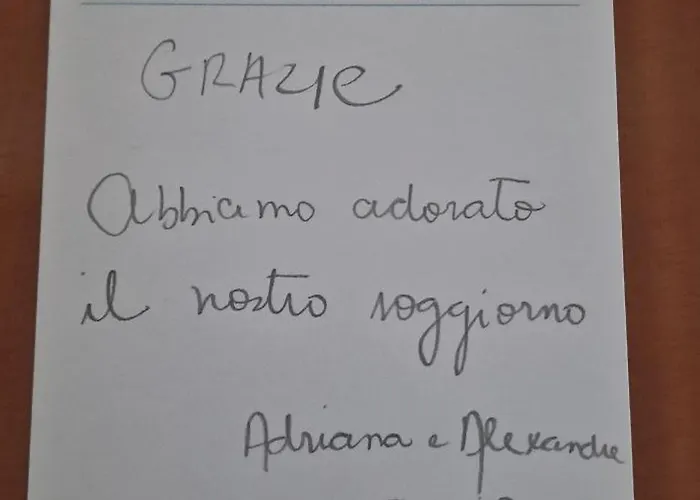 GRAZIE
Abbiamo adorato
il nostro soggiorno
Adriana e Alexandre